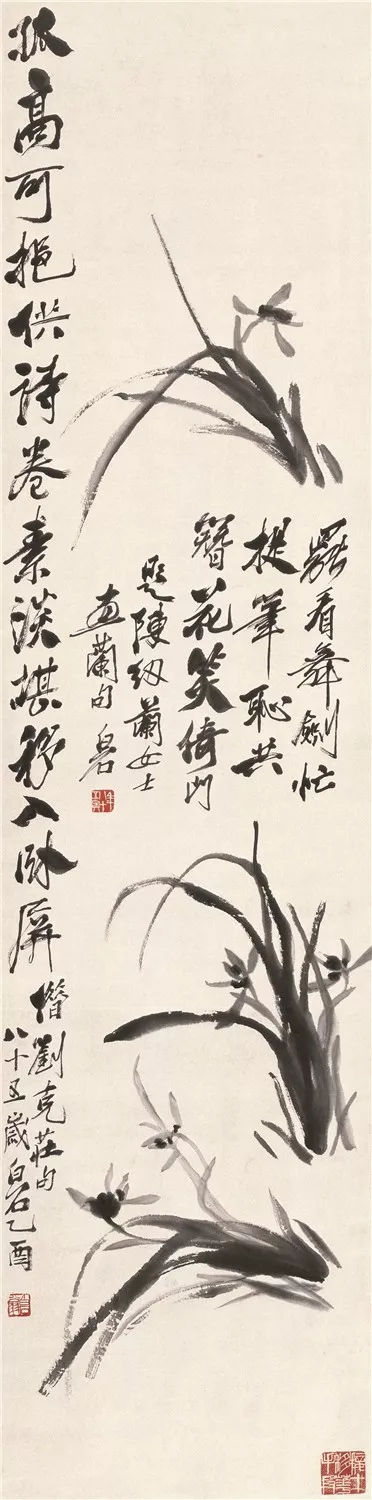 罷看舞劍忙
提筆恥共
簪花笑倚門
題陳紉蘭女士
畫蘭句白石
孤高可挹供詩卷素淡堪移入臥屏借劉克莊句
八十五歲白石乙酉